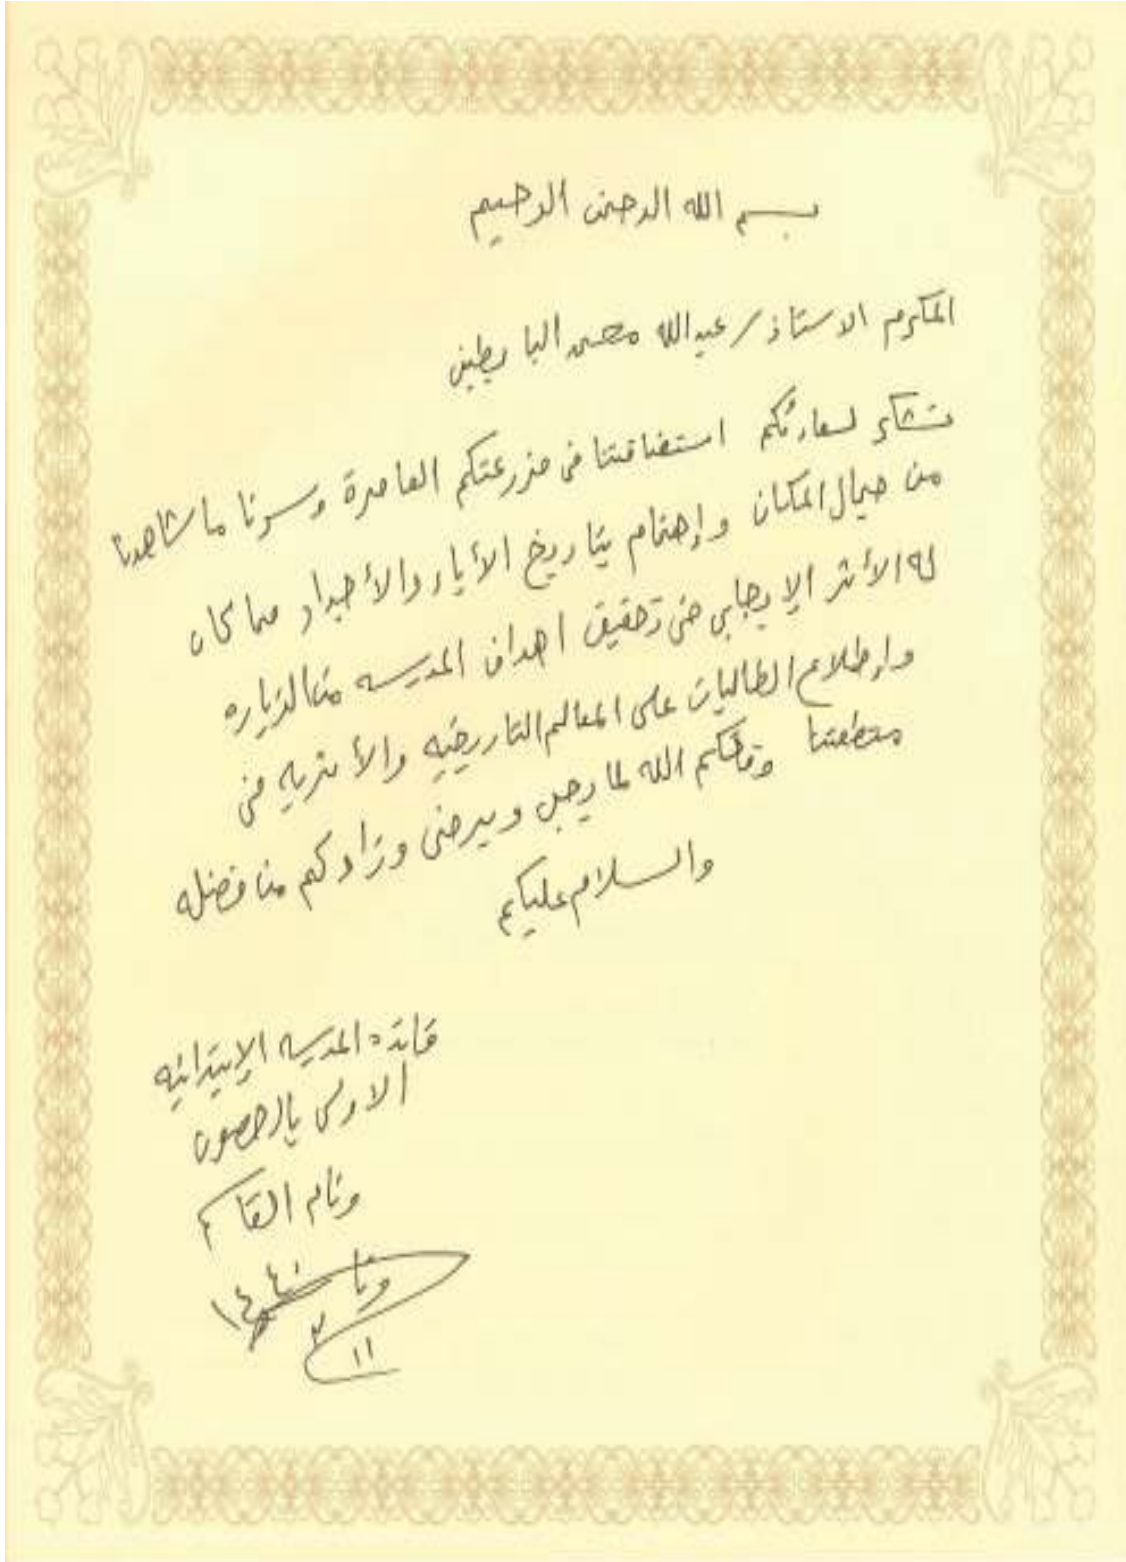 بسم الله الرحمن الرحيم
المكرم الاستاذ / عبدالله محمد البابطين
نشكر لسعادتكم استضافتنا في مزرعتكم العامرة وسرنا ما شاهدنا
من جمال المكان وإهتمام بتاريخ الأباء والأجداد مما كان
له الأثر الإيجابي في تحقيق اهداف المدرسه من الزياره
وإطلاع الطالبات على المعالم التاريخيه والأثريه في
منطقتنا وفقكم الله لما يحب ويرضى وزادكم من فضله
والسلام عليكم
قائدة المدرسه الإبتدائيه
الاولى بالحصون
وئام القاسم
وئام
١٤٤٠
١١